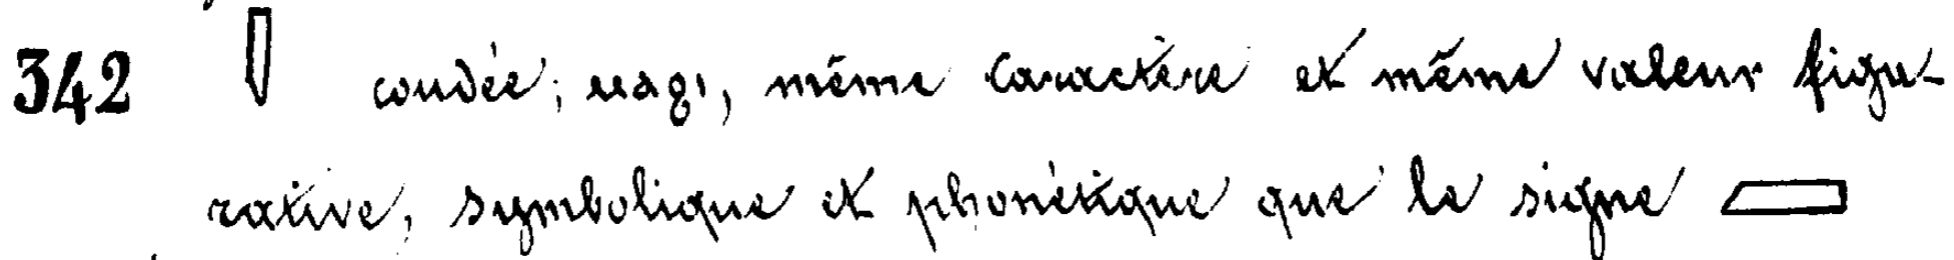 342 coudée; ⲙⲁϩⲓ, même caractère et même valeur figu-
rative, symbolique et phonétique que le signe